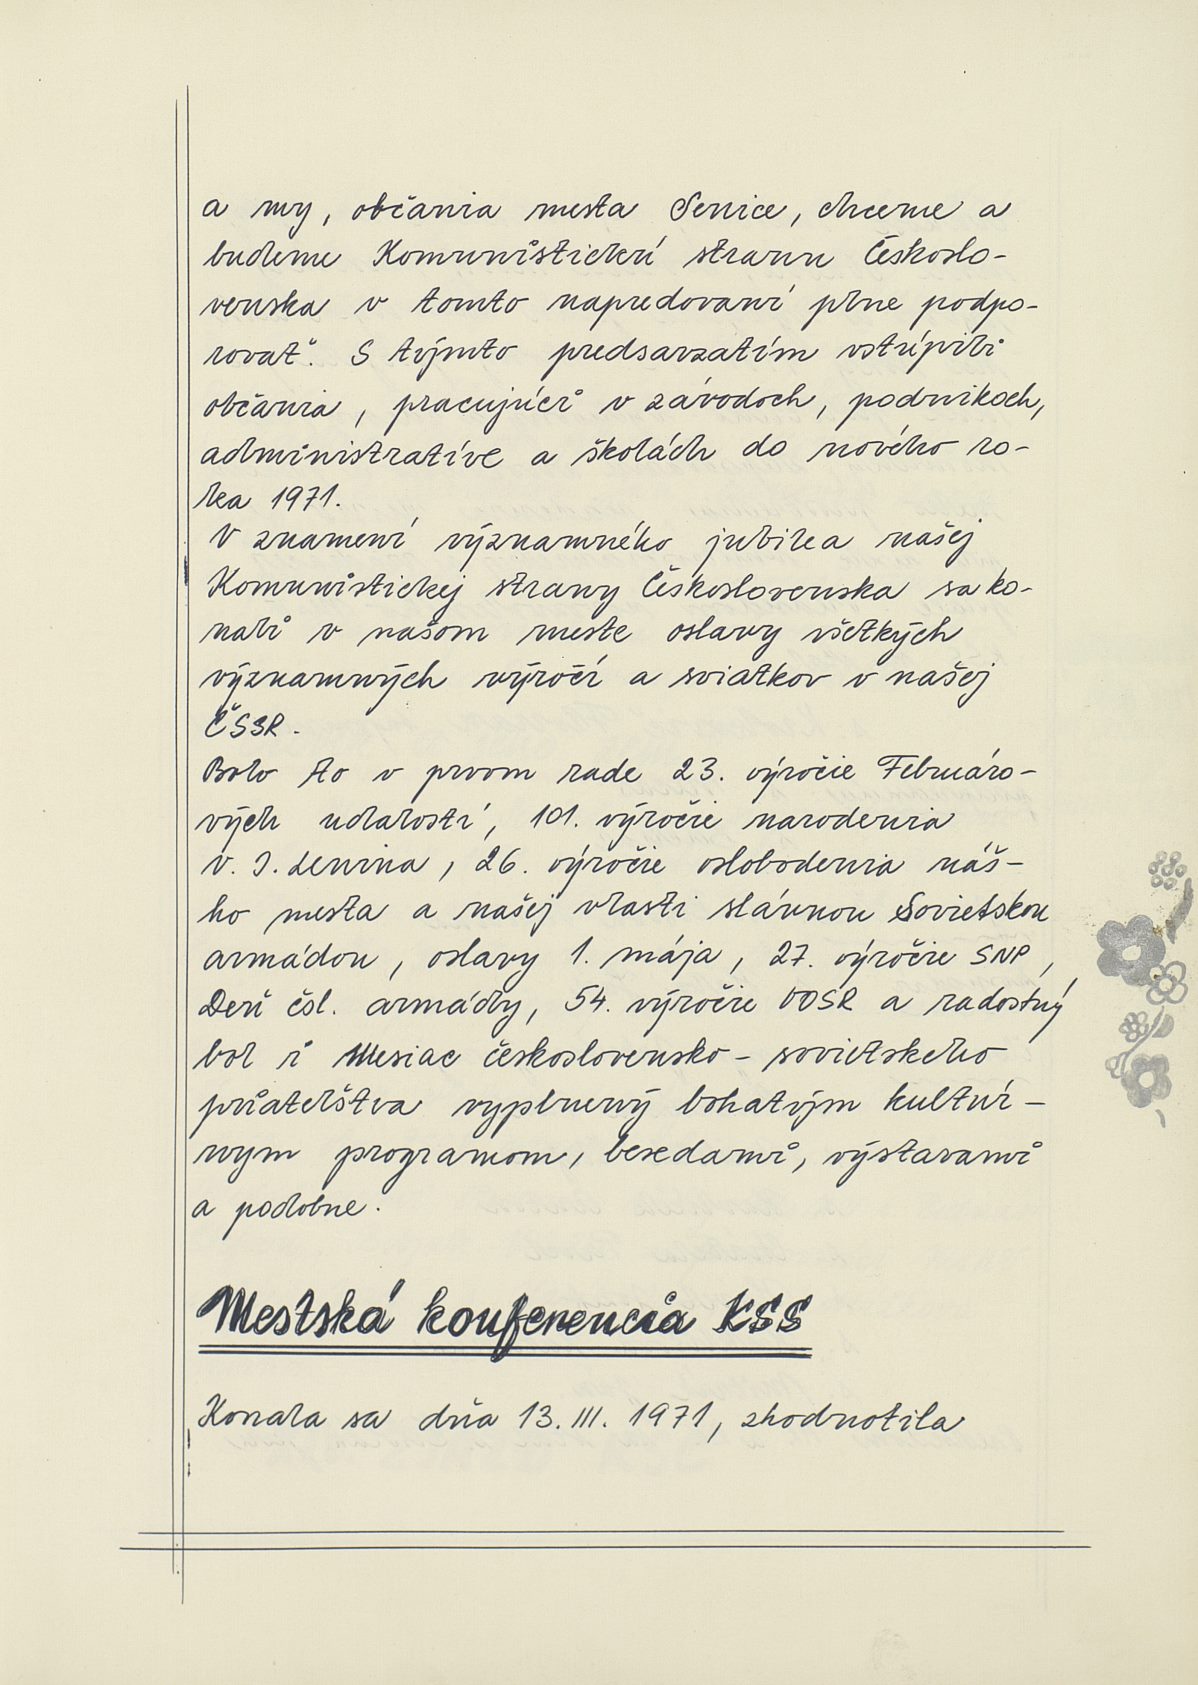 a my, občania mesta Senice, chceme a
budeme Komunistickú stranu Českoslo-
venska v tomto napredovaní plne podpo-
rovať". S týmto predsavzatím vstúpili
občania, pracujúci v závodoch, podnikoch,
administratíve a školách do nového ro-
ka 1971.
V znamení významného jubilea našej
Komunistickej strany Československa sa ko-
nali v našom meste oslavy všetkých
významných výročí a sviatkov v našej
ČSSR.
Bolo to v prvom rade 23. výročie Februáro-
vých udalostí, 101. výročie narodenia
V. I. Lenina, 26. výročie oslobodenia náš-
ho mesta a našej vlasti slávnou Sovietskou
armádou, oslavy 1. mája, 27. výročie SNP,
Deň čsl. armády, 54. výročie VOSR a radostný
bol i Mesiac československo-sovietskeho
priateľstva vyplnený bohatým kultúr-
nym programom, besedami, výstavami
a podobne.
Mestská konferencia KSS
Konala sa dňa 13. III. 1971, zhodnotila